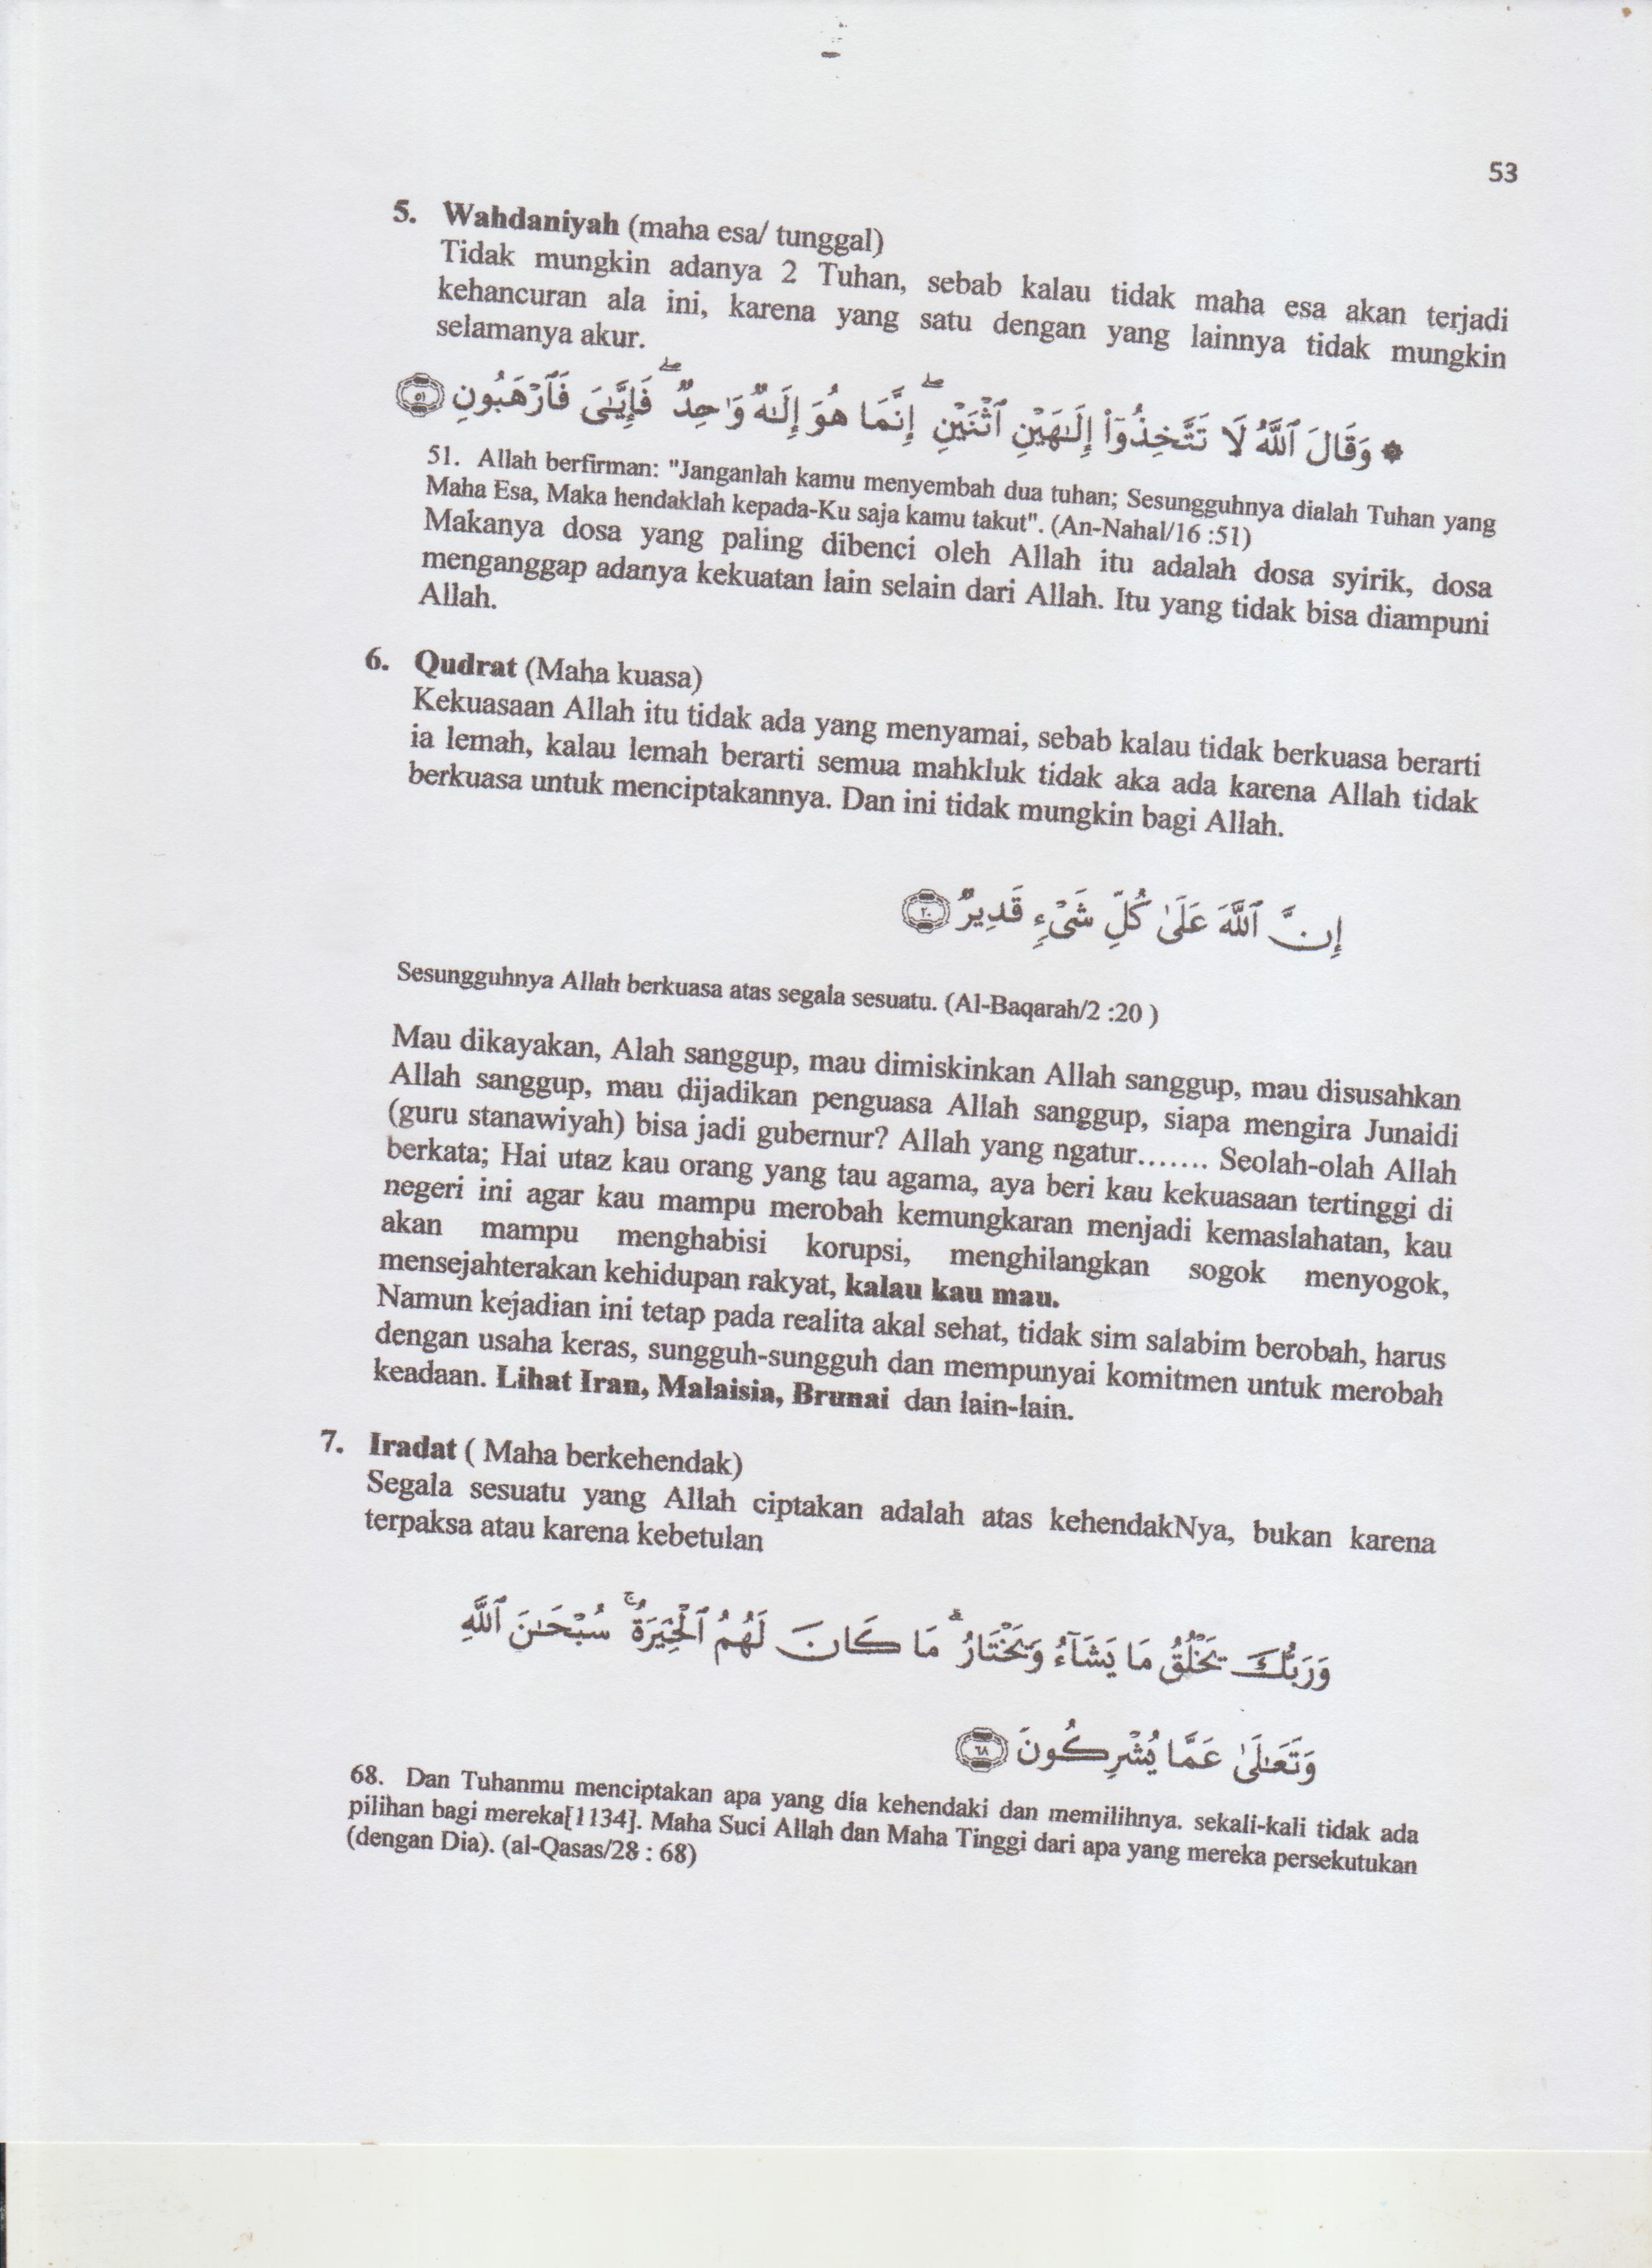 53
5. Wahdaniyah (maha esa/ tunggal)
Tidak mungkin adanya 2 Tuhan, sebab kalau tidak maha esa akan terjadi
kehancuran ala ini, karena yang satu dengan yang lainnya tidak mungkin
selamanya akur.
۞ وَقَالَ ٱللَّهُ لَا تَتَّخِذُوٓا۟ إِلَـٰهَيْنِ ٱثْنَيْنِ ۖ إِنَّمَا هُوَ إِلَـٰهٌ وَٰحِدٌ ۖ فَإِيَّـٰىَ فَٱرْهَبُونِ ٥١
51. Allah berfirman: "Janganlah kamu menyembah dua tuhan; Sesungguhnya dialah Tuhan yang
Maha Esa, Maka hendaklah kepada-Ku saja kamu takut". (An-Nahal/16 :51)
Makanya dosa yang paling dibenci oleh Allah itu adalah dosa syirik, dosa
menganggap adanya kekuatan lain selain dari Allah. Itu yang tidak bisa diampuni
Allah.
6. Qudrat (Maha kuasa)
Kekuasaan Allah itu tidak ada yang menyamai, sebab kalau tidak berkuasa berarti
ia lemah, kalau lemah berarti semua mahkluk tidak aka ada karena Allah tidak
berkuasa untuk menciptakannya. Dan ini tidak mungkin bagi Allah.
إِنَّ ٱللَّهَ عَلَىٰ كُلِّ شَىْءٍ قَدِيرٌ ٢٠
Sesungguhnya Allah berkuasa atas segala sesuatu. (Al-Baqarah/2 :20 )
Mau dikayakan, Alah sanggup, mau dimiskinkan Allah sanggup, mau disusahkan
Allah sanggup, mau dijadikan penguasa Allah sanggup, siapa mengira Junaidi
(guru stanawiyah) bisa jadi gubernur? Allah yang ngatur....... Seolah-olah Allah
berkata; Hai utaz kau orang yang tau agama, aya beri kau kekuasaan tertinggi di
negeri ini agar kau mampu merobah kemungkaran menjadi kemaslahatan, kau
akan mampu menghabisi korupsi, menghilangkan sogok menyogok,
mensejahterakan kehidupan rakyat, kalau kau mau.
Namun kejadian ini tetap pada realita akal sehat, tidak sim salabim berobah, harus
dengan usaha keras, sungguh-sungguh dan mempunyai komitmen untuk merobah
keadaan. Lihat Iran, Malaisia, Brunai dan lain-lain.
7. Iradat ( Maha berkehendak)
Segala sesuatu yang Allah ciptakan adalah atas kehendakNya, bukan karena
terpaksa atau karena kebetulan
وَرَبُّكَ يَخْلُقُ مَا يَشَآءُ وَيَخْتَارُ ۗ مَا كَانَ لَهُمُ ٱلْخِيَرَةُ ۚ سُبْحَـٰنَ ٱللَّهِ
وَتَعَـٰلَىٰ عَمَّا يُشْرِكُونَ ٦٨
68. Dan Tuhanmu menciptakan apa yang dia kehendaki dan memilihnya. sekali-kali tidak ada
pilihan bagi mereka[1134]. Maha Suci Allah dan Maha Tinggi dari apa yang mereka persekutukan
(dengan Dia). (al-Qasas/28 : 68)